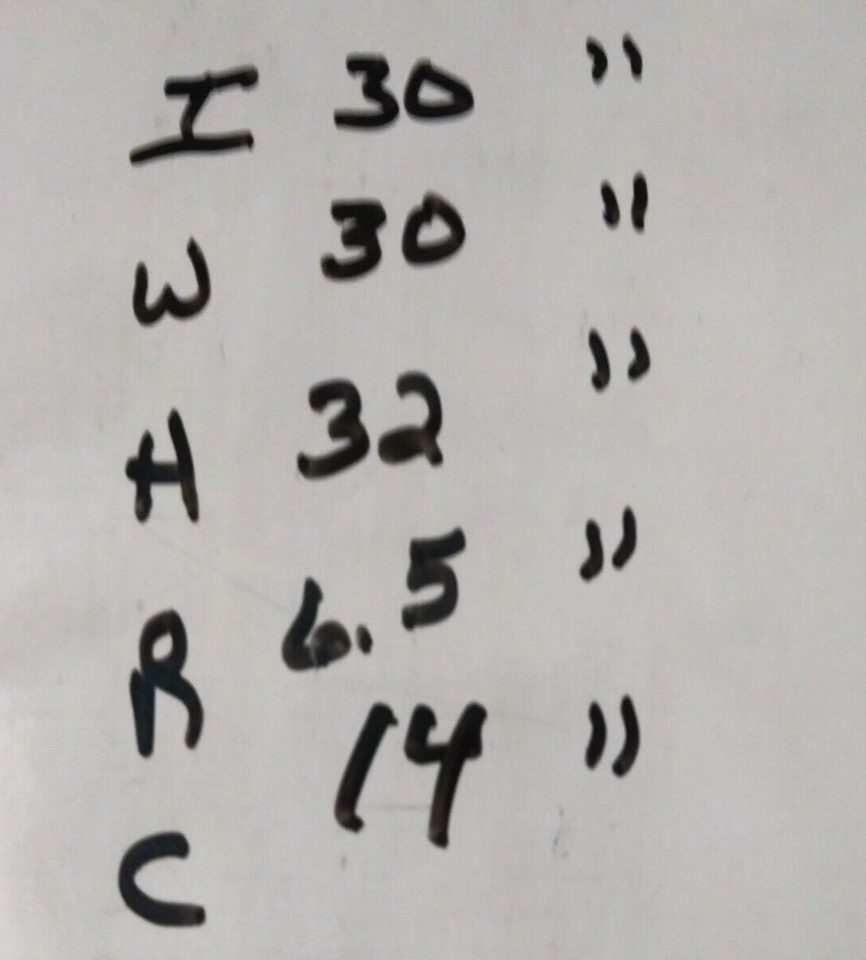 I 30 "
W 30 "
H 32 "
R 6.5 "
C 14 "